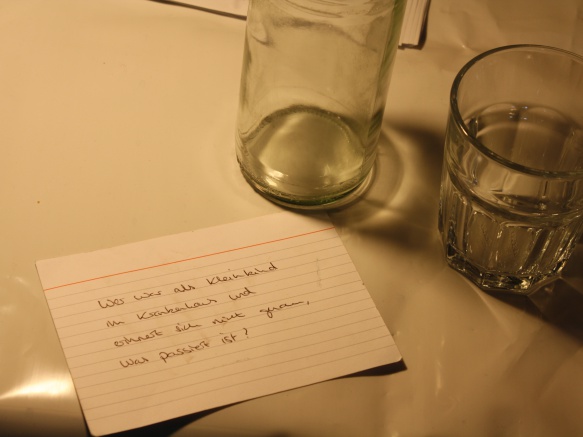 Wer war als Kleinkind
im Krankenhaus und
erinnert sich nicht genau,
was passiert ist?